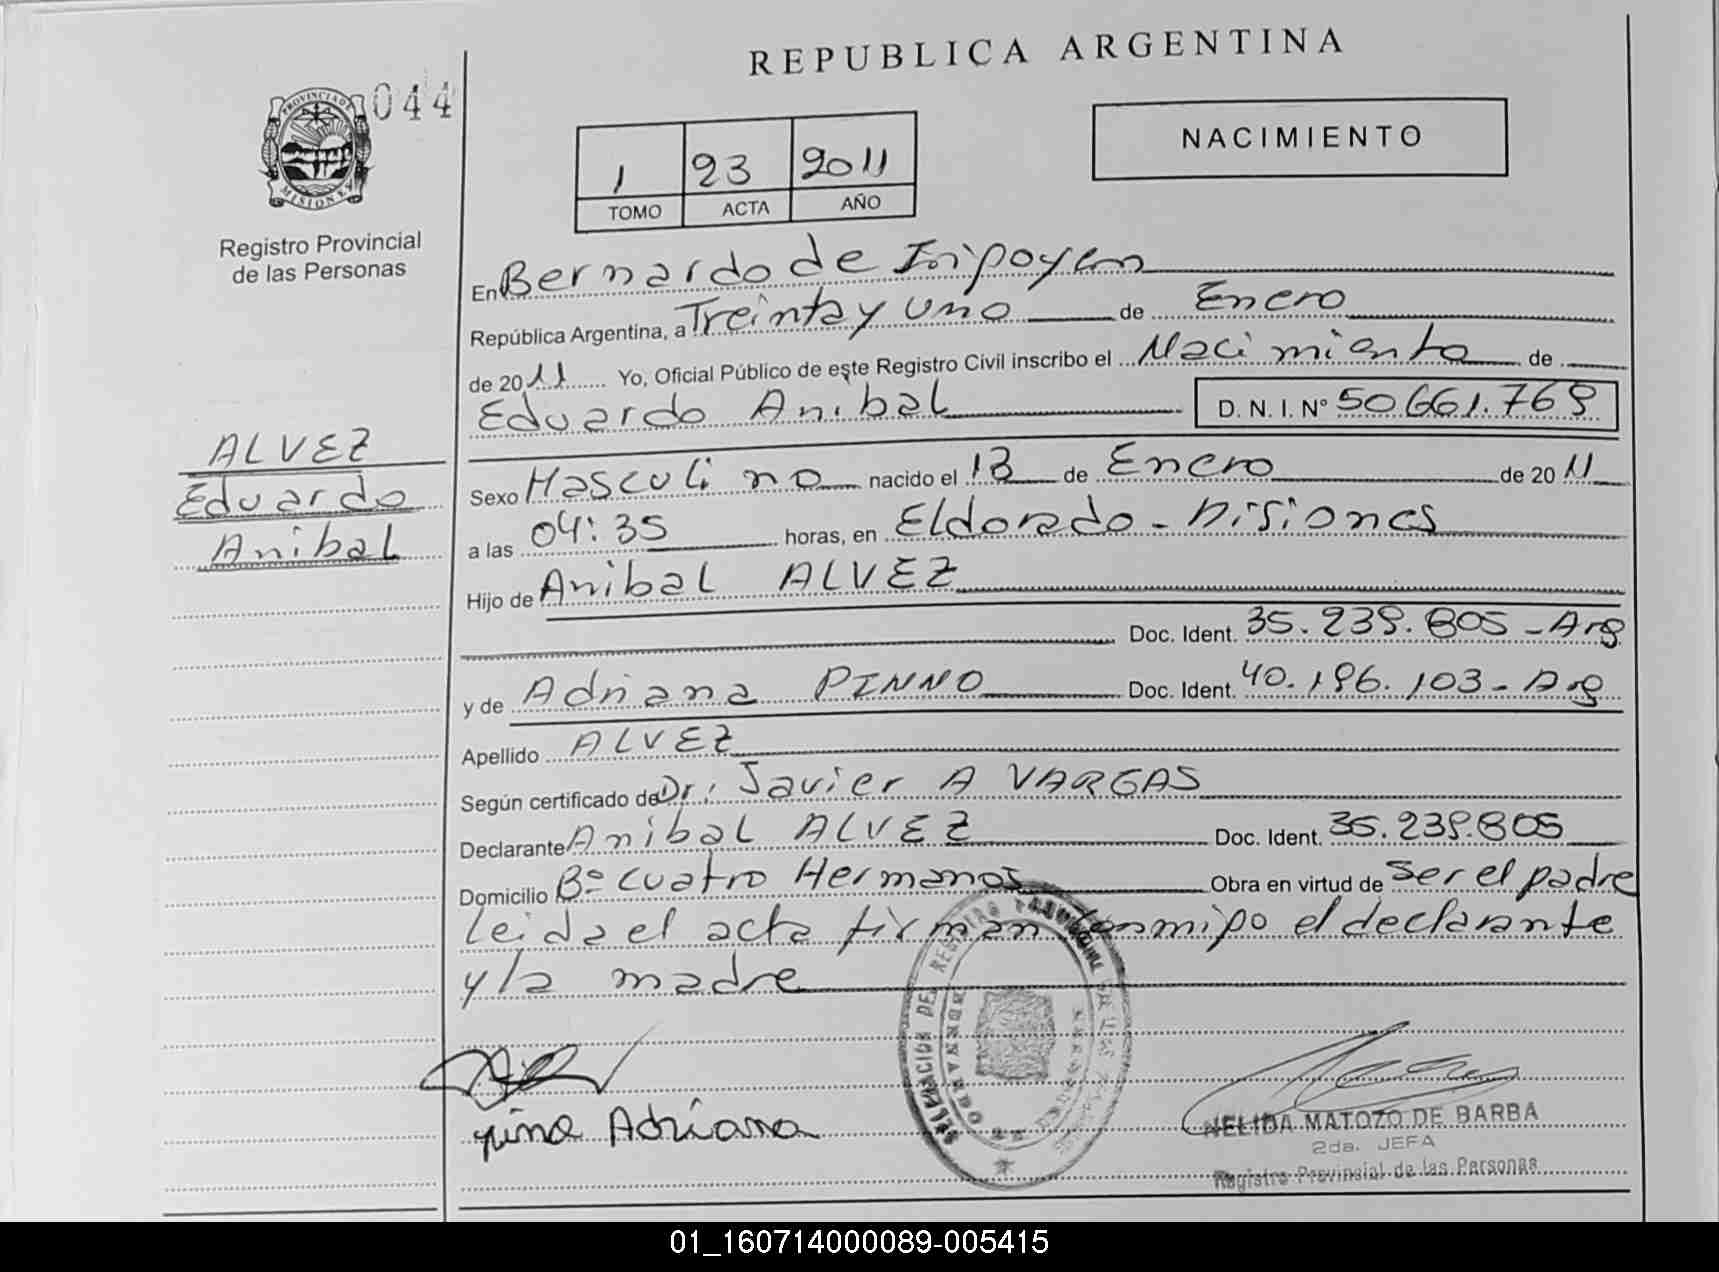 REPUBLICA ARGENTINA
044
PROVINCIA DE
MISIONES
Registro Provincial
de las Personas
NACIMIENTO
1 23 2011
TOMO ACTA AÑO
En Bernardo de Irigoyen
República Argentina, a Treinta y uno de Enero
de 2011 Yo, Oficial Público de este Registro Civil inscribo el Nacimiento de
Eduardo Anibal D. N. I. Nº 50.661.769
ALVEZ
Eduardo
Anibal
Sexo Masculino nacido el 13 de Enero de 2011
a las 04:35 horas, en Eldorado - Misiones
Hijo de Anibal ALVEZ
Doc. Ident. 35.239.805 - Arg
y de Adriana PINNO Doc. Ident. 40.196.103 - Arg
Apellido ALVEZ
Según certificado de Dr. Javier A VARGAS
Declarante Anibal ALVEZ Doc. Ident. 35.239.805
Domicilio Bº Cuatro Hermanos Obra en virtud de Ser el padre
Leida el acta firman conmigo el declarante
y la madre
Adriana
NELIDA MATOZO DE BARBA
2da. JEFA
Registro Provincial de las Personas
01_160714000089-005415